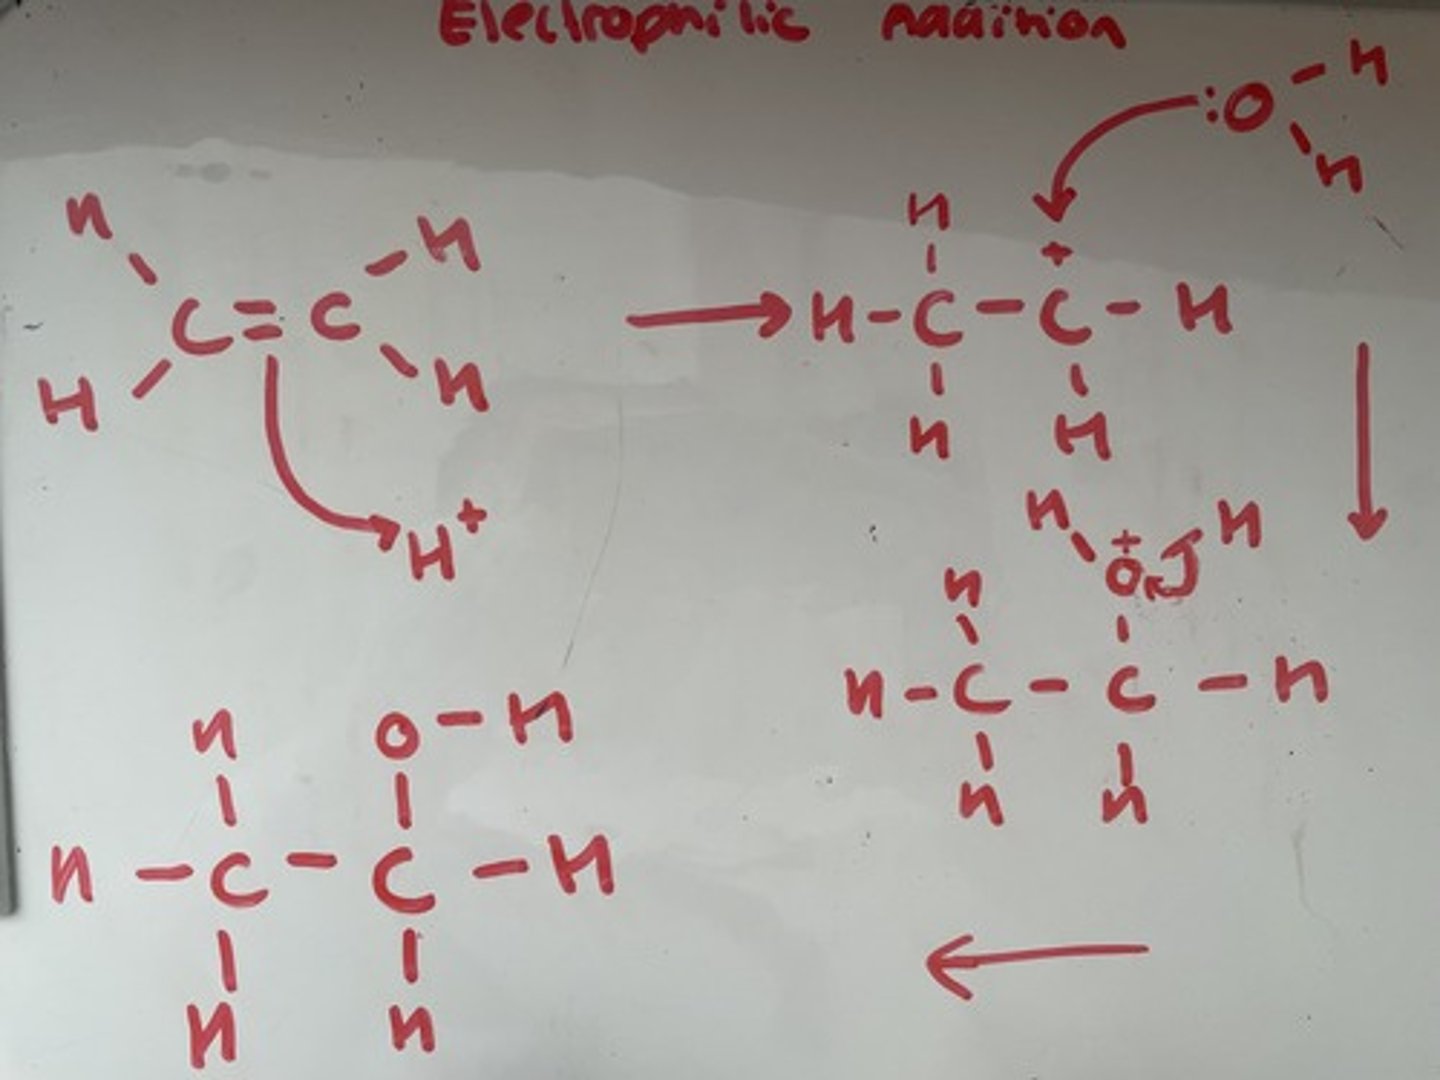 Electrophilic Addition
:O - H
H
H H
H
C = C H - C - C - H
+
H H
H H
H+
H + H
O
H
H - C - C - H
H H
H O - H
H - C - C - H
H H